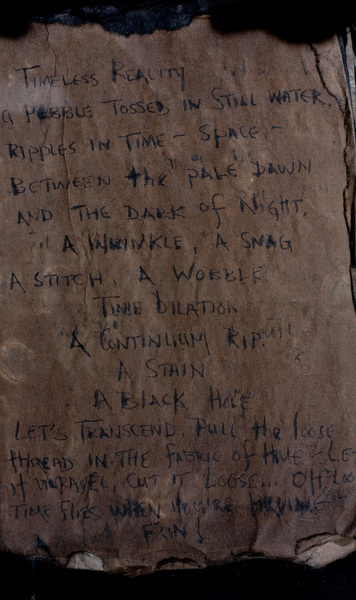 TIMELESS REALITY
A PEBBLE TOSSED IN STILL WATER.
RIPPLES IN TIME - SPACE -
BETWEEN the "PALE" DAWN
AND THE DARK of NIGHT.
A WRINKLE, A SNAG
A STITCH, A WOBBLE
TIME DILATION
A CONTINIUUM RIP.
A STAIN
A BLACK HOLE
LET'S TRANSCEND. PULL the loose
thREAD IN THE FABRIC of TIME - LE-
it UNRAVEL, CUT IT LOOSE... OH LOO
TIME FLIES WHEN YOU'RE HAVING
FUN!